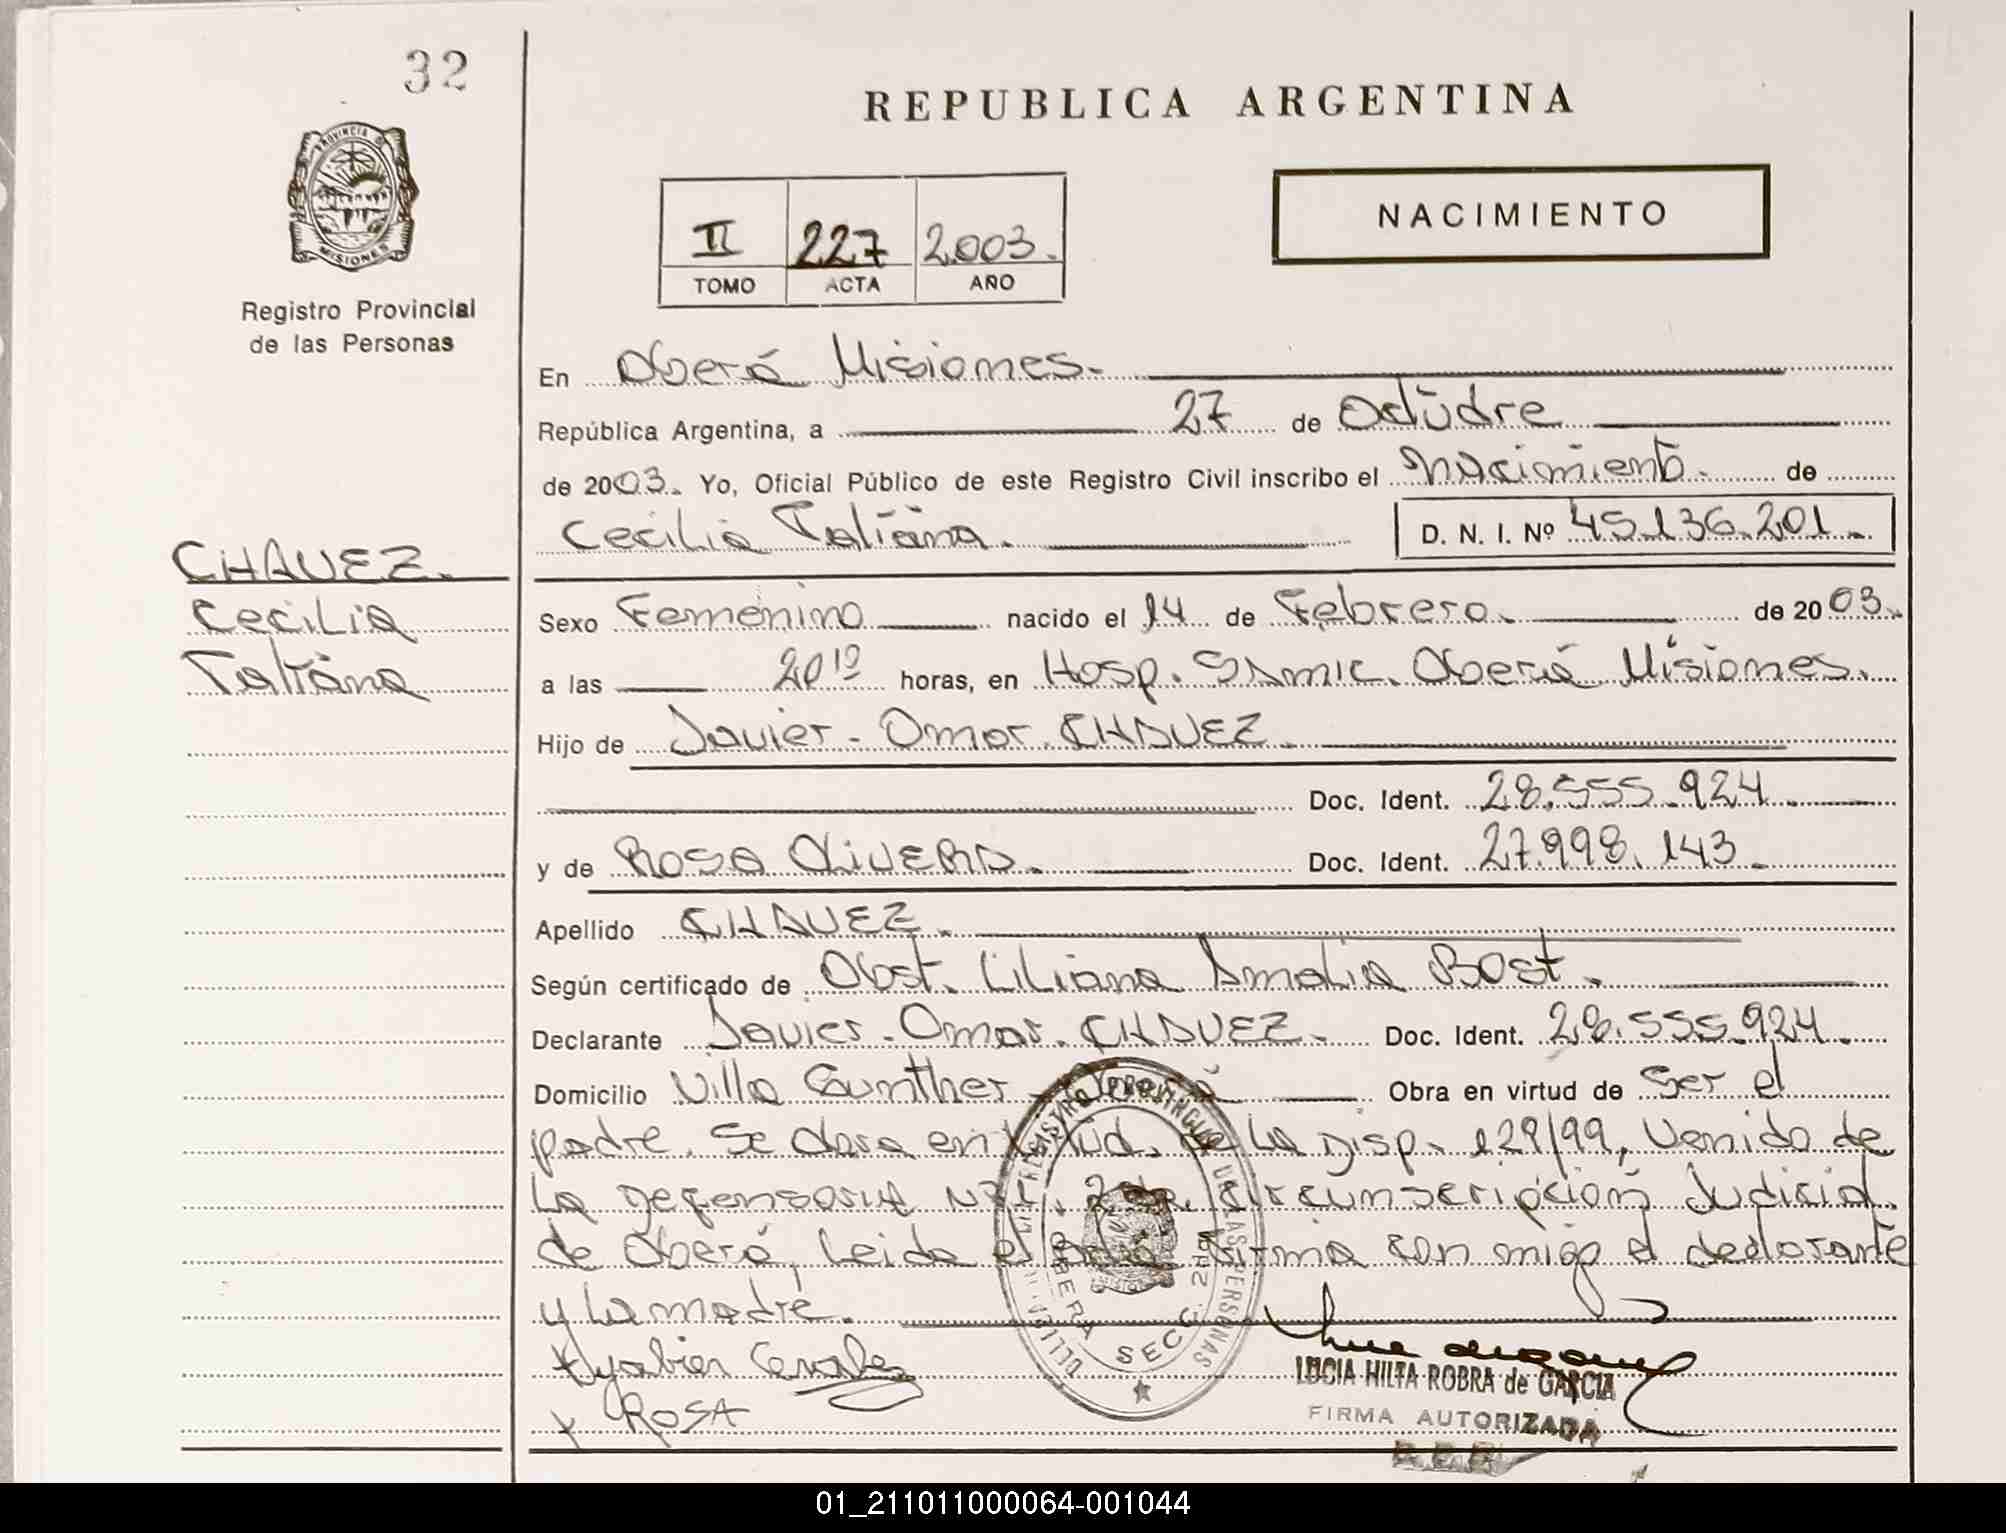 32
REPUBLICA ARGENTINA
PROVINCIA D
MISIONES
Registro Provincial
de las Personas
NACIMIENTO
II 227 2.003.
TOMO ACTA AÑO
En Oberá Misiones.
República Argentina, a 27 de Octubre
de 2003. Yo, Oficial Público de este Registro Civil inscribo el Nacimiento. de
Cecilia Tatiana. D. N. I. Nº 45.136.201.
CHAVEZ.
Cecilia
Tatiana
Sexo Femenino nacido el 14 de Febrero. de 2003.
a las 20 10 horas, en Hosp. SAMIC. Oberá Misiones.
Hijo de Javier. Omar. CHAVEZ.
Doc. Ident. 28.555.924.
y de Rosa OLIVERA. Doc. Ident. 27.998.143.
Apellido CHAVEZ.
Según certificado de Obst. Liliana Amalia Bost.
Declarante Javier. Omar. CHAVEZ. Doc. Ident. 28.555.924.
Domicilio Villa Gunther - Oberá Obra en virtud de Ser el
padre. Se labra en virtud. de la Disp. 129/99, Venido de
la Defensoria Nº 1. 2da. Circunscripcion Judicial.
de Oberá, Leida el acta firma con migo el declarante
y la madre.
ROSA
REGISTRO PROVINCIAL DE LAS PERSONAS
OBERA SECC. 2
LUCIA HILTA ROBRA de GARCIA
FIRMA AUTORIZADA
01_211011000064-001044